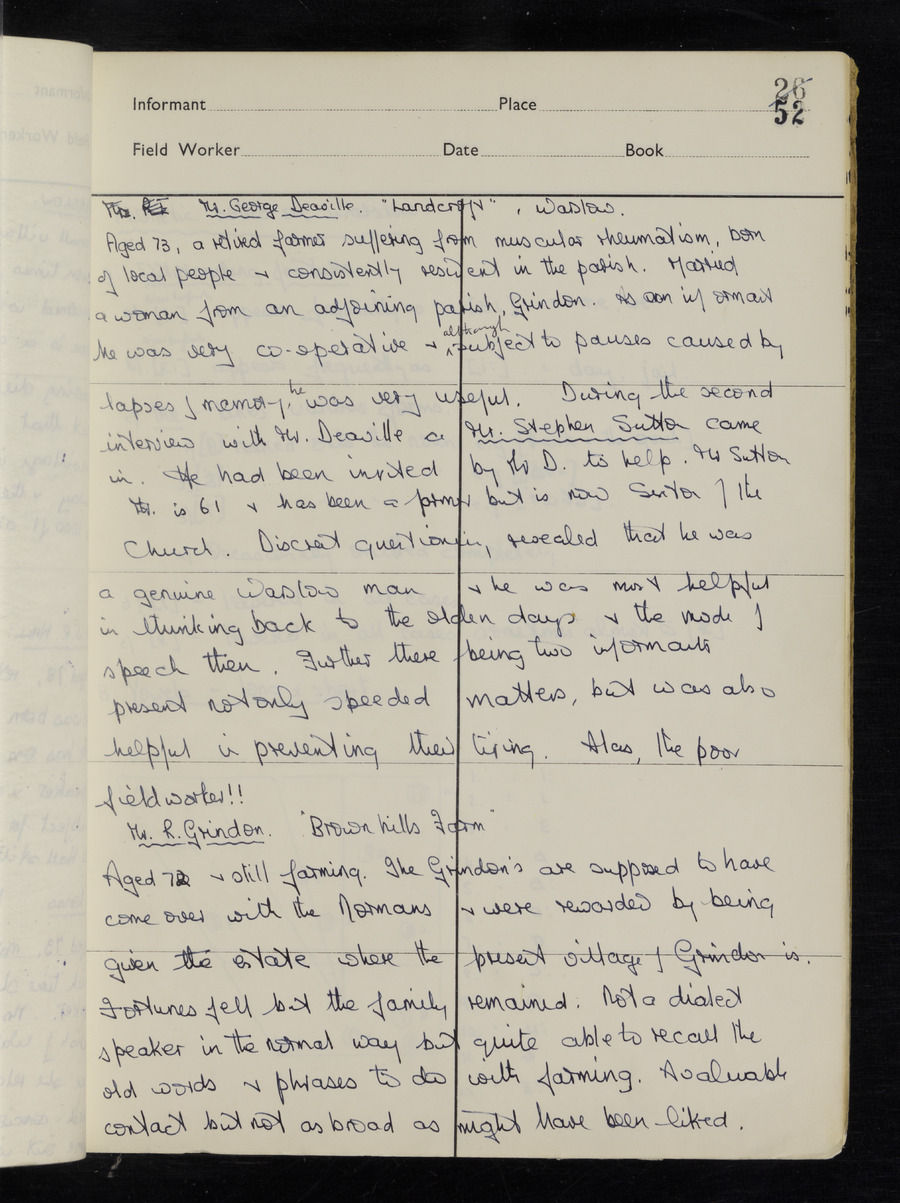 26
52
Informant Place
Field Worker Date Book
Mr. George Deaville. "Landcroft", Warslow.
Aged 73, a retired farmer suffering from muscular rheumatism, born
of local people & consistently resident in the parish. Married
a woman from an adjoining parish, Grindon. As an informant
he was very co-operative & although subject to pauses caused by
lapses of memory, he was very useful. During the second
interview with Mr. Deaville a Mr. Stephen Sutton came
in. He had been invited by Mr D. to help. Mr Sutton
is 61 & has been a farmer but is now Sexton of the
Church. Discreet questioning, revealed that he was
a genuine Warslow man & he was most helpful
in thinking back to the olden days & the mode of
speech then. Further there being two informants
present not only speeded matters, but was also
helpful in preventing their tiring. Alas, the poor
fieldworker!!
Mr. R. Grindon. "Brownhills Farm"
Aged 72 & still farming. The Grindon's are supposed to have
come over with the Normans & were rewarded by being
given the estate where the present village of Grindon is.
Fortunes fell but the family remained. Not a dialect
speaker in the normal way but quite able to recall the
old words & phrases to do with farming. A valuable
contact but not as broad as might have been liked.